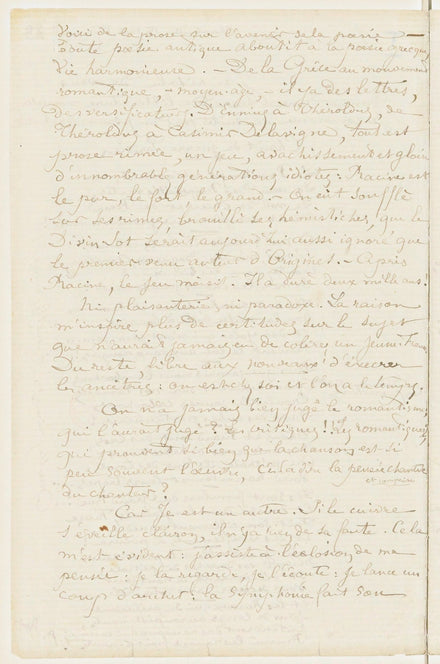 Voici de la prose sur l'avenir de la poésie —
Toute poésie antique aboutit à la poésie grecque,
Vie harmonieuse. — De la Grèce au mouvement
romantique, — moyen-âge, — il y a des lettrés,
des versificateurs. D'Ennius à Théroldus, de
Théroldus à Casimir Delavigne, tout est
prose rimée, un jeu, avachissement et gloire
d'innombrables générations idiotes : Racine est
le pur, le fort, le grand. — On eût soufflé
sur ses rimes, brouillé ses hémistiches, que le
Divin Sot serait aujourd'hui aussi ignoré que
le premier venu auteur d'Origines. — Après
Racine, le jeu moisit. Il a duré deux mille ans !
Ni plaisanterie, ni paradoxe. La raison
m'inspire plus de certitudes sur le sujet
que n'aurait jamais eu de colères un jeune-France.
Du reste, libre aux nouveaux ! d'exécrer
les ancêtres : on est chez soi et l'on a le temps.
On n'a jamais bien jugé le romantisme ;
qui l'aurait jugé ? les critiques !! Les romantiques,
qui prouvent si bien que la chanson est si
peu souvent l'œuvre, c'est à dire la pensée chantée
et comprise
du chanteur ?
Car Je est un autre. Si le cuivre
s'éveille clairon, il n'y a rien de sa faute. Cela
m'est évident : j'assiste à l'éclosion de ma
pensée : je la regarde, je l'écoute : je lance un
coup d'archet : la symphonie fait son